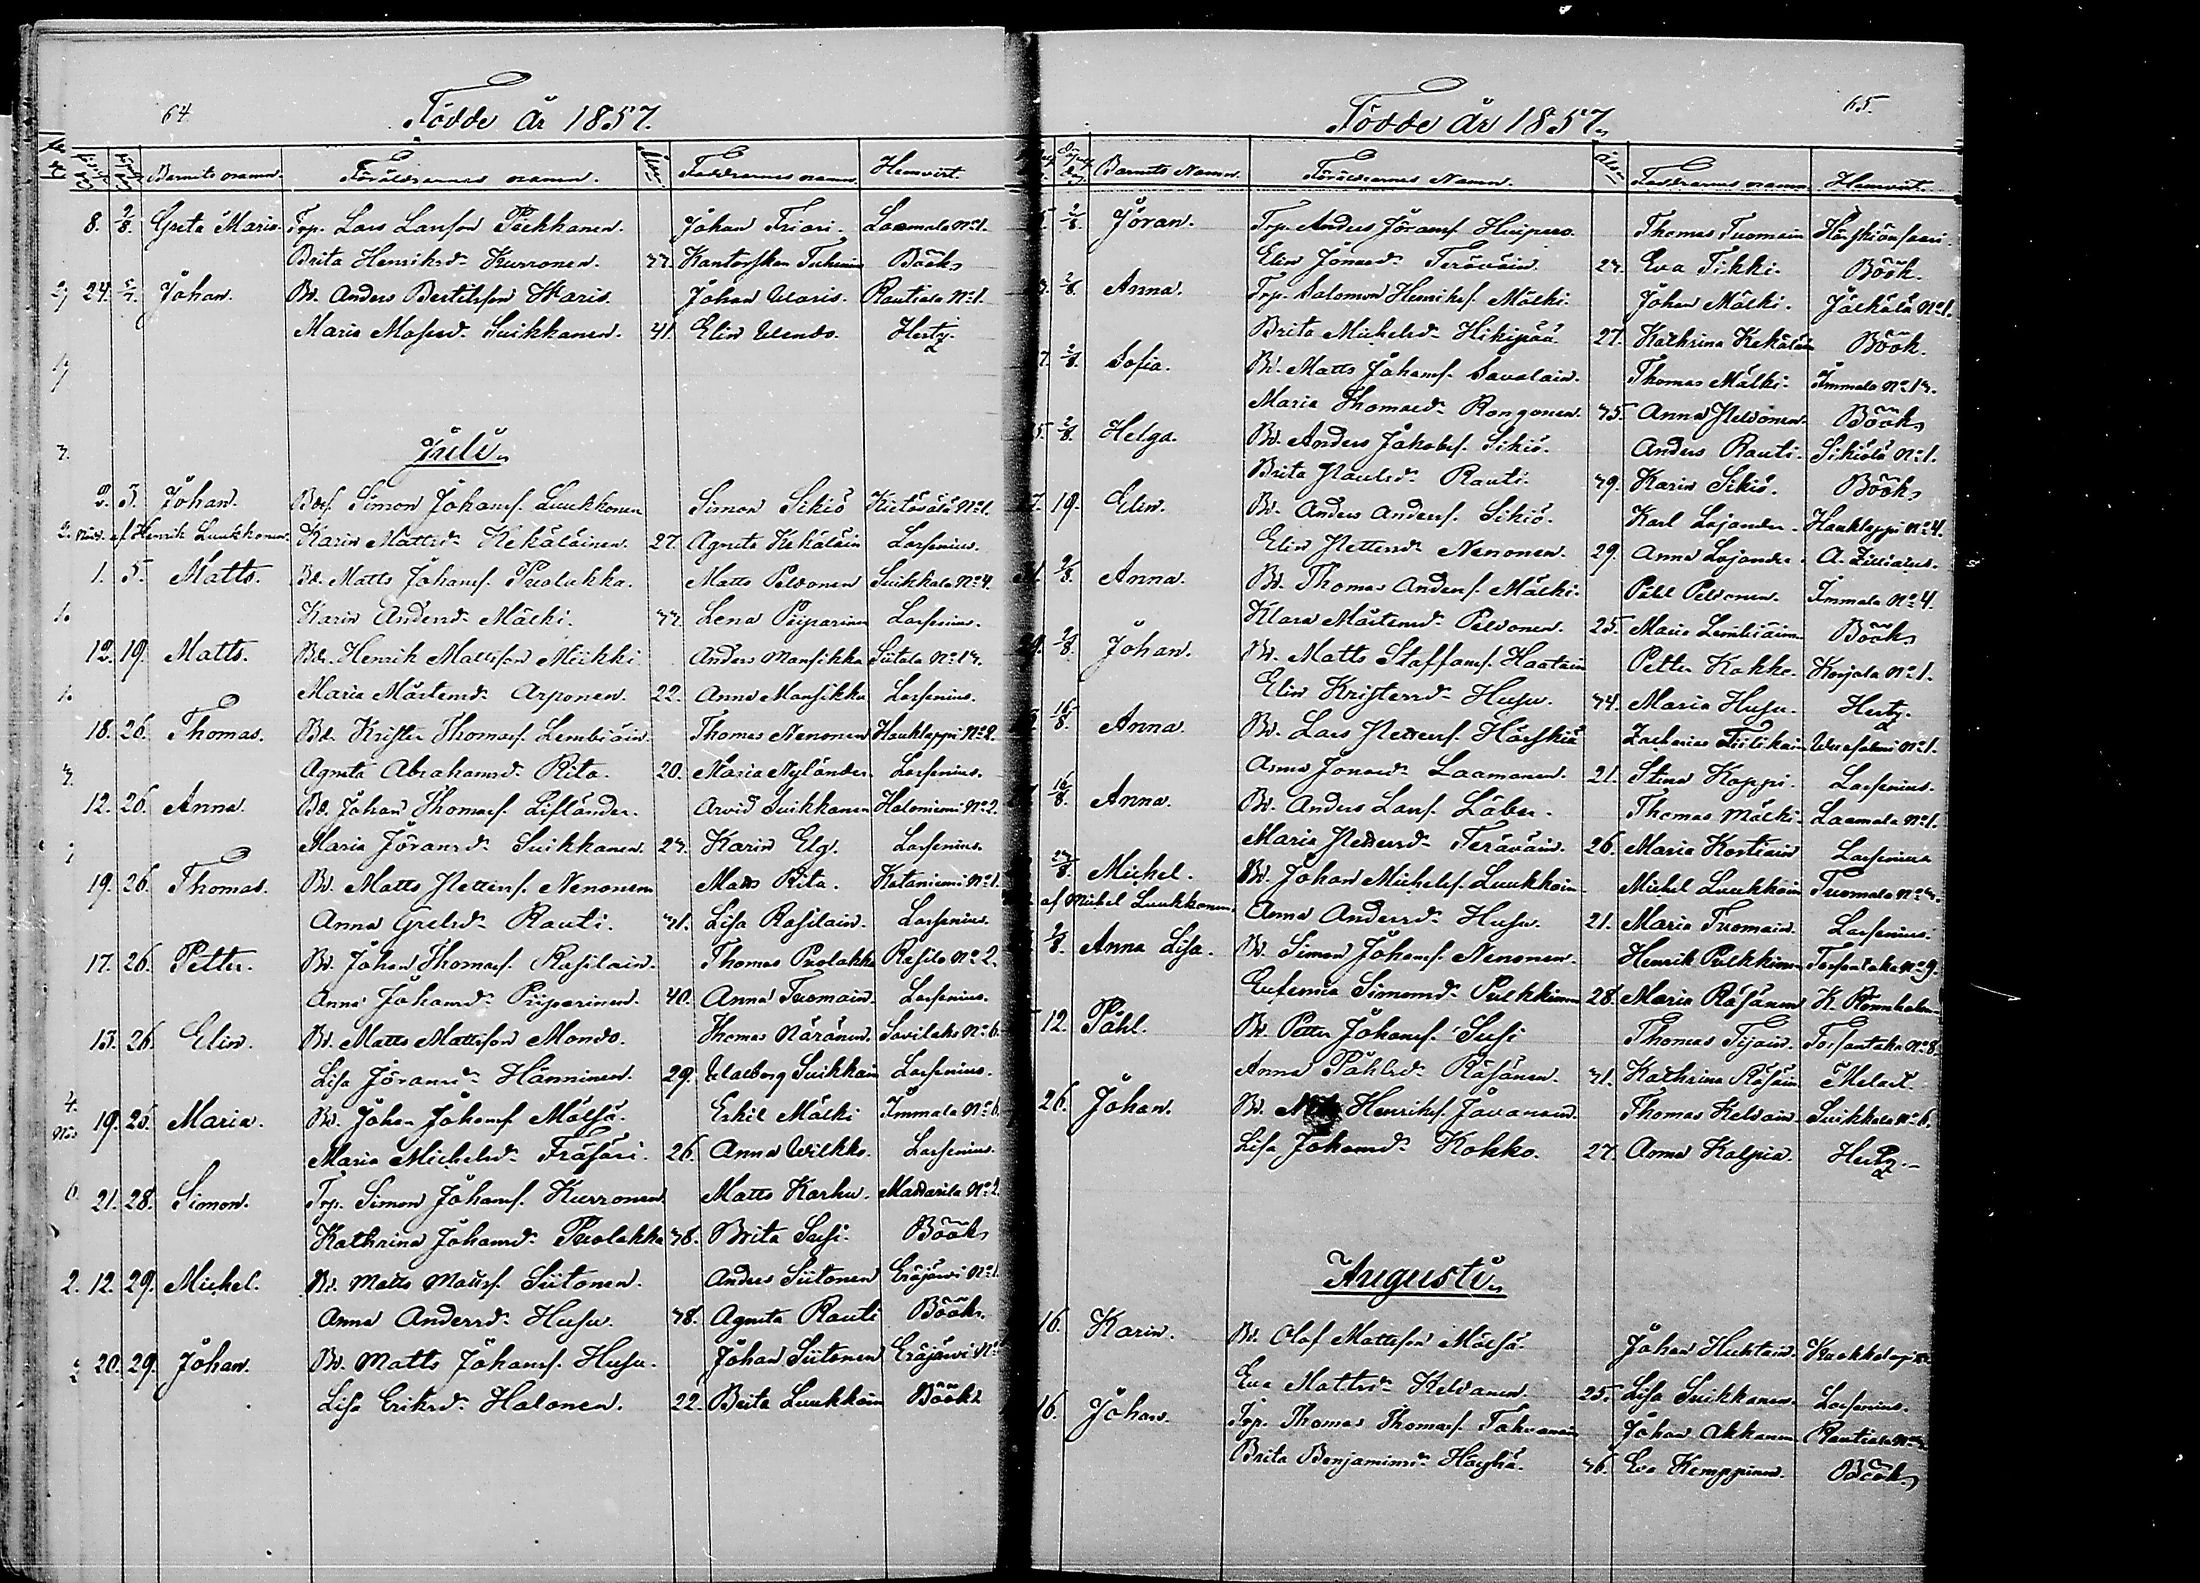 64.
Födde År 1857.
Barnets namn. Föräldrarnes namn. Ålder Faddrarnes namn Hemvist.
8. 2/8. Greta Maria. Trp. Lars Larsson Pöckkanen. Johan Friari. Laamala No 1.
Brita Henriksdr. Kurronen. 33. Kantorskan Böök
24. Johan. Bd. Anders Bertilsson Waris. Johan Waris. Rautiala No 1.
Maria Matsdr. Suikkanen. 41. Elin Wendo. Hertz.
Juli.
2. 5. Johan. Bds. Simon Johansf. Luukkonen Simon Sikiö Kietävälä No 1.
af Henrik Luukkonen. Karin Mattsdr. Kekäläinen. 27. Agneta Kekäläin Lassenius.
1. 5. Matts. Bd. Matts Johansf. Puolakka. Matts Peldonen Suikkala No 4.
Karin Andersdr. Mälki. 33. Lena Piiparinen Lassenius.
12. 19. Matts. Bd. Henrik Mattsson Mikki Anders Mansikka Siitala No 13.
Maria Mårtensdr. Asponen. 22. Anna Mansikka Lassenius.
18. 26. Thomas. Bd. Krister Thomasf. Lembiäin. Thomas Nenonen Haukkappi No 2.
Agneta Abrahamsdr. Rita. 20. Maria Nyländer Lassenius.
12. 26. Anna. Bd. Johan Thomasf. Lifländer. Arvid Suikkanen Haloniemi No 2.
Maria Jöransdr. Suikkanen. 23. Karin Elg. Lassenius.
19. 26. Thomas. Bd. Matts Pettersf. Nenonen Matts Rita. Kataniemi No 1.
Anna Grelsdr. Rauti. 31. Lisa Rasilain. Lassenius.
17. 26. Petter. Bd. Johan Thomasf. Rasilain. Thomas Puolakka Rasila No 2.
Anna Johansdr. Piiparinen. 40. Anna Tuomain. Lassenius.
13. 26. Elin. Bd. Matts Mattsson Mondo. Thomas Näränen. Savilaks No 6.
Lisa Jöransdr. Hänninen. 29. Walborg Suikkain Lassenius.
19. 25. Maria. Bd. Johan Johansf. Mölsä. Eskil Mälki Immala No 6.
Maria Michelsdr. Träskäri. 26. Anna Wilkko. Lassenius.
21. 28. Simon. Trp. Simon Johansf. Kurronen. Matts Karhu. Maddarila No 2.
Kathrina Johansdr. Puolakka 38. Brita Susi. Böök
2. 12. 29. Michel. Bd. Matts Mattsf. Siitonen. Anders Siitonen Eräjärvi No 1.
Anna Andersdr. Husu. 38. Agneta Rauti Böök.
20. 29. Johan. Bd. Matts Johansf. Husu. Johan Siitonen Eräjärvi No
Lisa Eriksdr. Halonen. 22. Brita Luukkoin Böök
65.
Födde År 1857.
Barnets Namn. Föräldrarnes Namn. Ålder Faddrarnes namn Hemvist.
2/8. Jöran. Trp. Anders Jöransf. Huipero. Thomas Tuomain Härskiänsaari.
Elin Jönsdr. Teräväin. 23. Eva Tikki. Böök.
2/8. Anna. Trp. Salomon Henriksf. Mälki. Johan Mälki. Jälkälä No 1.
Brita Michelsdr. Hikipää. 27. Kathrina Kekäläin Böök.
2/8. Sofia. Bd. Matts Johansf. Savolain. Thomas Mälki. Immala No 13.
Maria Thomasdr. Rongonen. 35. Anna Peldonen. Böök
2/8. Helga. Bd. Anders Jakobsf. Sikiö. Anders Rauti. Sikiölä No 1.
Brita Paulsdr. Rauti. 39. Karin Sikiö. Böök
19. Elin. Bd. Anders Andersf. Sikiö. Karl Lojander. Haukkappi No 4.
Elin Pettersdr. Nenonen. 29. Anna Lojander. A. Zilliacus.
2/8. Anna. Bd. Thomas Andersf. Mälki. Påhl Peldonen. Immala No 4.
Klara Mårtensdr. Peldonen. 25. Maria Lembiäinen Böök
2/8. Johan. Bd. Matts Staffansf. Haatain Petter Kokko. Korjola No 1.
Elin Kristersdr. Husu. 34. Maria Husu. Hertz.
16/8. Anna. Bd. Lars Pettersf. Härskiä Zacharias Tiilikain No 1.
Anna Jönsdr. Laamanen. 21. Stina Koppi. Lassenius.
16/8. Anna. Bd. Anders Larsf. Löber. Thomas Mälki. Laamala No 1.
Maria Pettersdr. Teräväin. 26. Maria Kostiain Lassenius
23/8. Michel. Bd. Johan Michelsf. Luukkoin. Michel Luukkoin Tuomala No 3.
af Michel Luukkonen. Anna Andersdr. Husu. 21. Maria Tuomain. Lassenius.
2/8. Anna Lisa. Bd. Simon Johansf. Nenonen. Henrik Pulkkinen Torsantaka No 9.
Eufemia Simonsdr. Pulkkinen 28. Maria Räsänen K. Rönnholm
12. Påhl. Bd. Petter Johansf. Susi Thomas Tijain. Torsantaka No 8.
Anna Påhlsdr. Räsänen. 31. Kathrina Räsäin Melart
26. Johan. Bd. Henriksf. Javanain. Thomas Keldain. Suikkala No 6.
Lisa Johansdr. Kokko. 27. Anna Kalpia. Hertz.
Augusti.
16. Karin. Bd. Olof Mattsson Mölsä. Johan Huhtain.
Eva Mattsdr. Keldanen. 25. Lisa Suikkanen. Lassenius.
16. Johan. Trp. Thomas Thomasf. Tahvanain Johan Akkanen Rautiala No 3.
Brita Benjaminsdr. Häyhä. 36. Eva Kemppinen. Böök